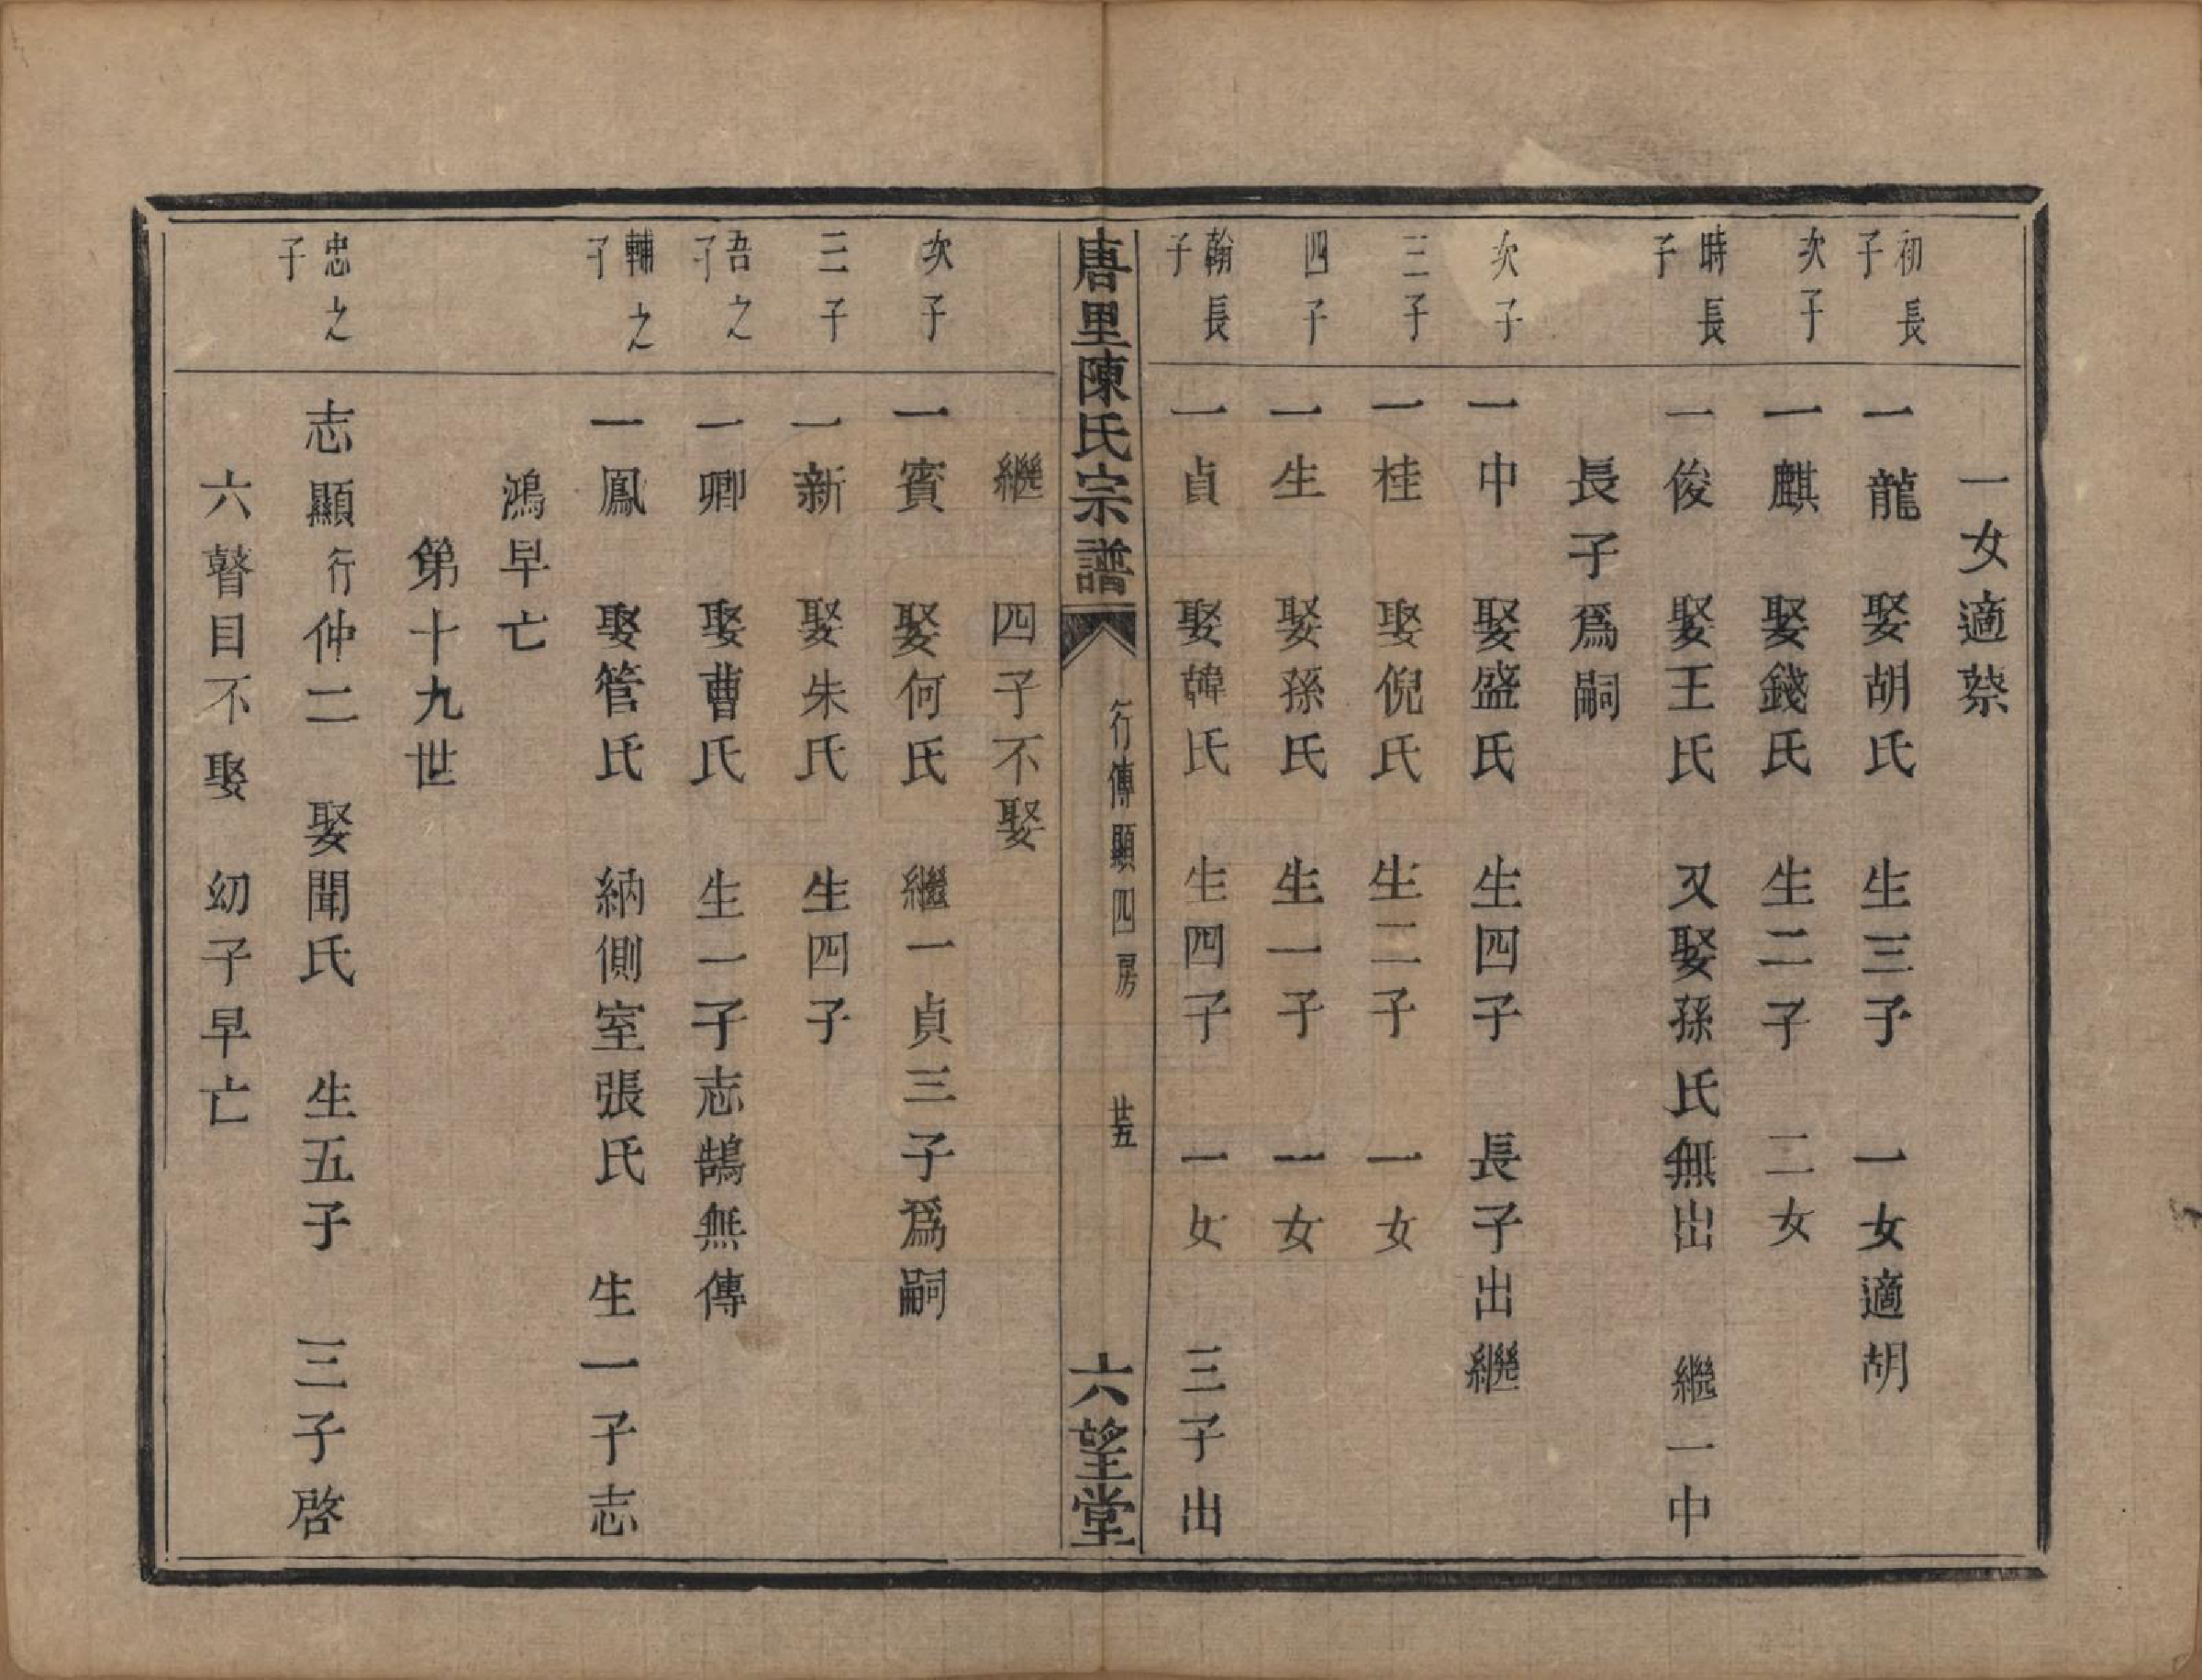 一女適蔡
初長子
一龍　娶胡氏　生三子　一女適胡
次子
一麒　娶錢氏　生二子　二女
時長子
一俊　娶王氏　又娶孫氏無出　繼一中
長子爲嗣
次子
一中　娶盛氏　生四子　長子出繼
三子
一桂　娶倪氏　生二子　一女
四子
一生　娶孫氏　生一子　一女
翰長子
一貞　娶韓氏　生四子　一女　三子出
唐里陳氏宗譜　行傳顯四房　廿五　六望堂
繼　四子不娶
次子
一賓　娶何氏　繼一貞三子爲嗣
三子
一新　娶朱氏　生四子
吾之子
一卿　娶曹氏　生一子志鵠無傳
輔之子
一鳳　娶管氏　納側室張氏　生一子志
鴻早亡
第十九世
忠之子
志顯行仲二　娶聞氏　生五子　三子啓
六瞽目不娶　幼子早亡